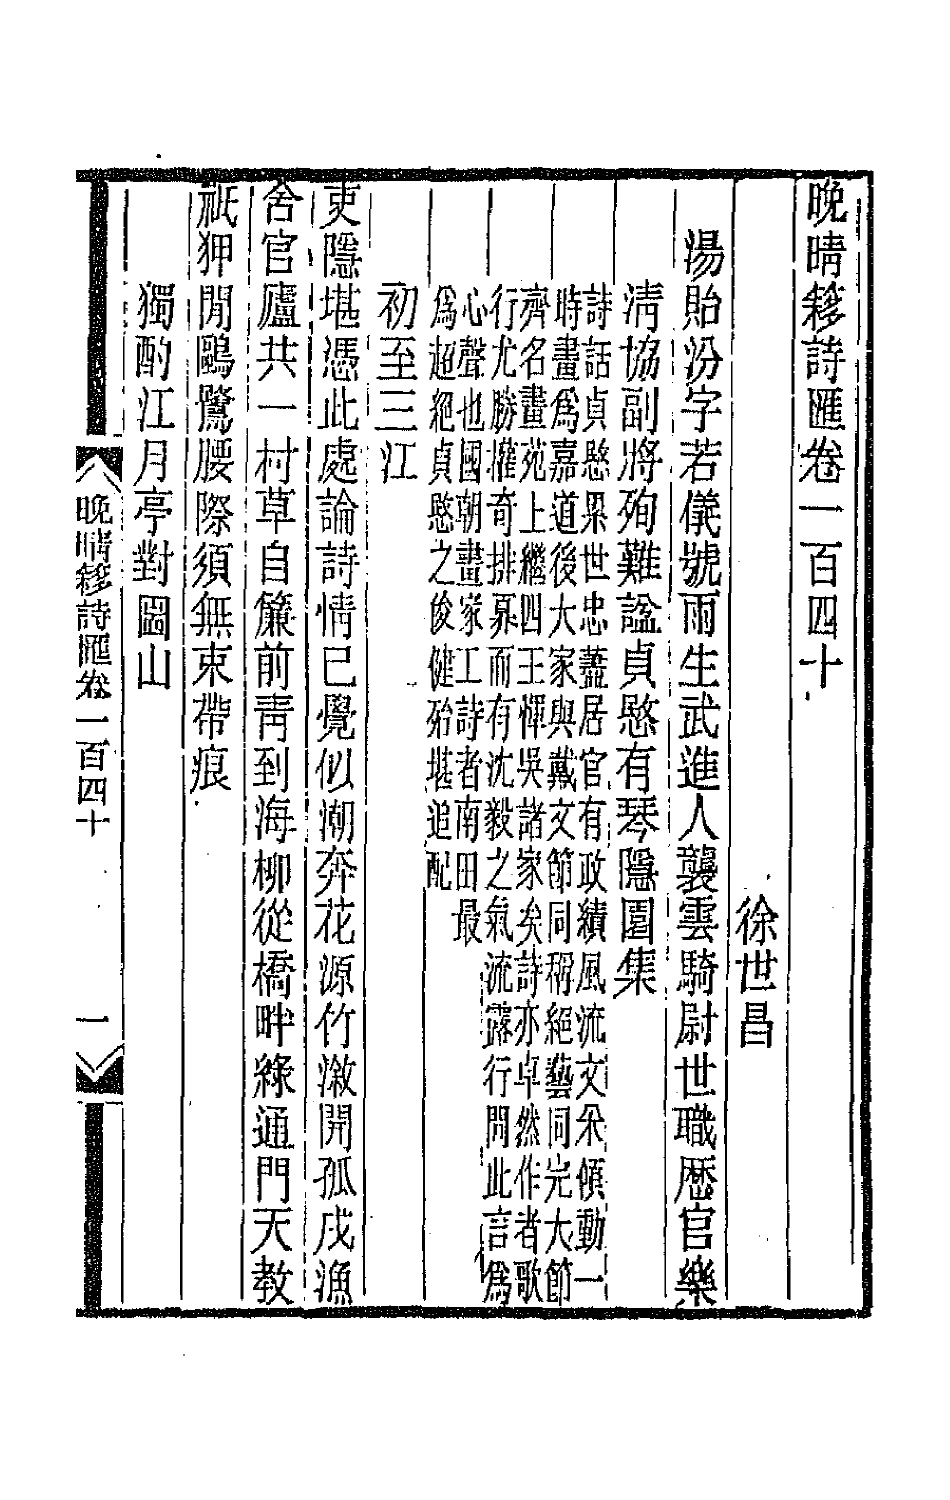 晚晴簃詩匯卷一百四十
徐世昌
湯貽汾字若儀號雨生武進人襲雲騎尉世職歷官樂
清協副將殉難諡貞愍有琴隱園集
詩話貞愍累世忠藎居官有政績風流文采傾動一
時畫爲嘉道後大家與戴文節同稱絕藝同完大節
齊名畫苑上繼四王惲吳諸家矣詩亦卓然作者歌
行尤勝攉奇排奡而有沈毅之氣流露行間此言爲
心聲也國朝畫家工詩者南田最
爲超絕貞愍之俊健殆堪追配
初至三江
吏隱堪憑此處論詩情已覺似潮奔花源竹漵開孤戍漁
舍官廬共一村草自簾前靑到海柳從橋畔綠通門天教
祇狎閒鷗鷺腰際須無束帶痕
獨酌江月亭對圌山
晚晴簃詩匯卷一百四十
一